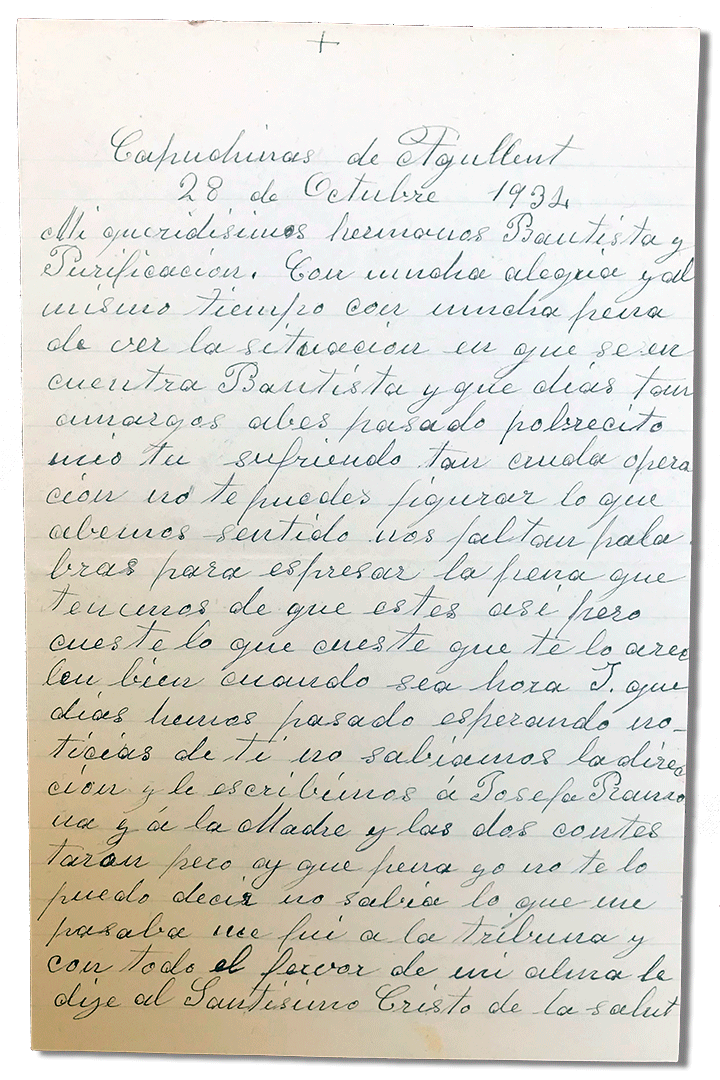 +
Capuchinas de Agullent
28 de Octubre 1934
Mi queridisimos hermanos Bautista y
Purificación. Con mucha alegria y al
mismo tiempo con mucha pena
de ver la situación en que se en
cuentra Bautista y que dias tan
amargos abes pasado pobrecito
mio tu sufriendo tan cruda opera
ción no te puedes figurar lo que
abemos sentido nos faltan pala
bras para espresar la pena que
tenemos de que estes asi pero
cueste lo que cueste que te lo arre
len bien cuando sea hora J. que
dias hemos pasado esperando no-
ticias de ti no sabiamos la direc
ción y le escribimos á Josefa Ramo
na y á la Madre y las dos contes
taron pero ay que pena yo no te lo
puedo decir no sabia lo que me
pasaba me fui a la tribuna y
con todo el fervor de mi alma le
dije al Santisimo Cristo de la salut